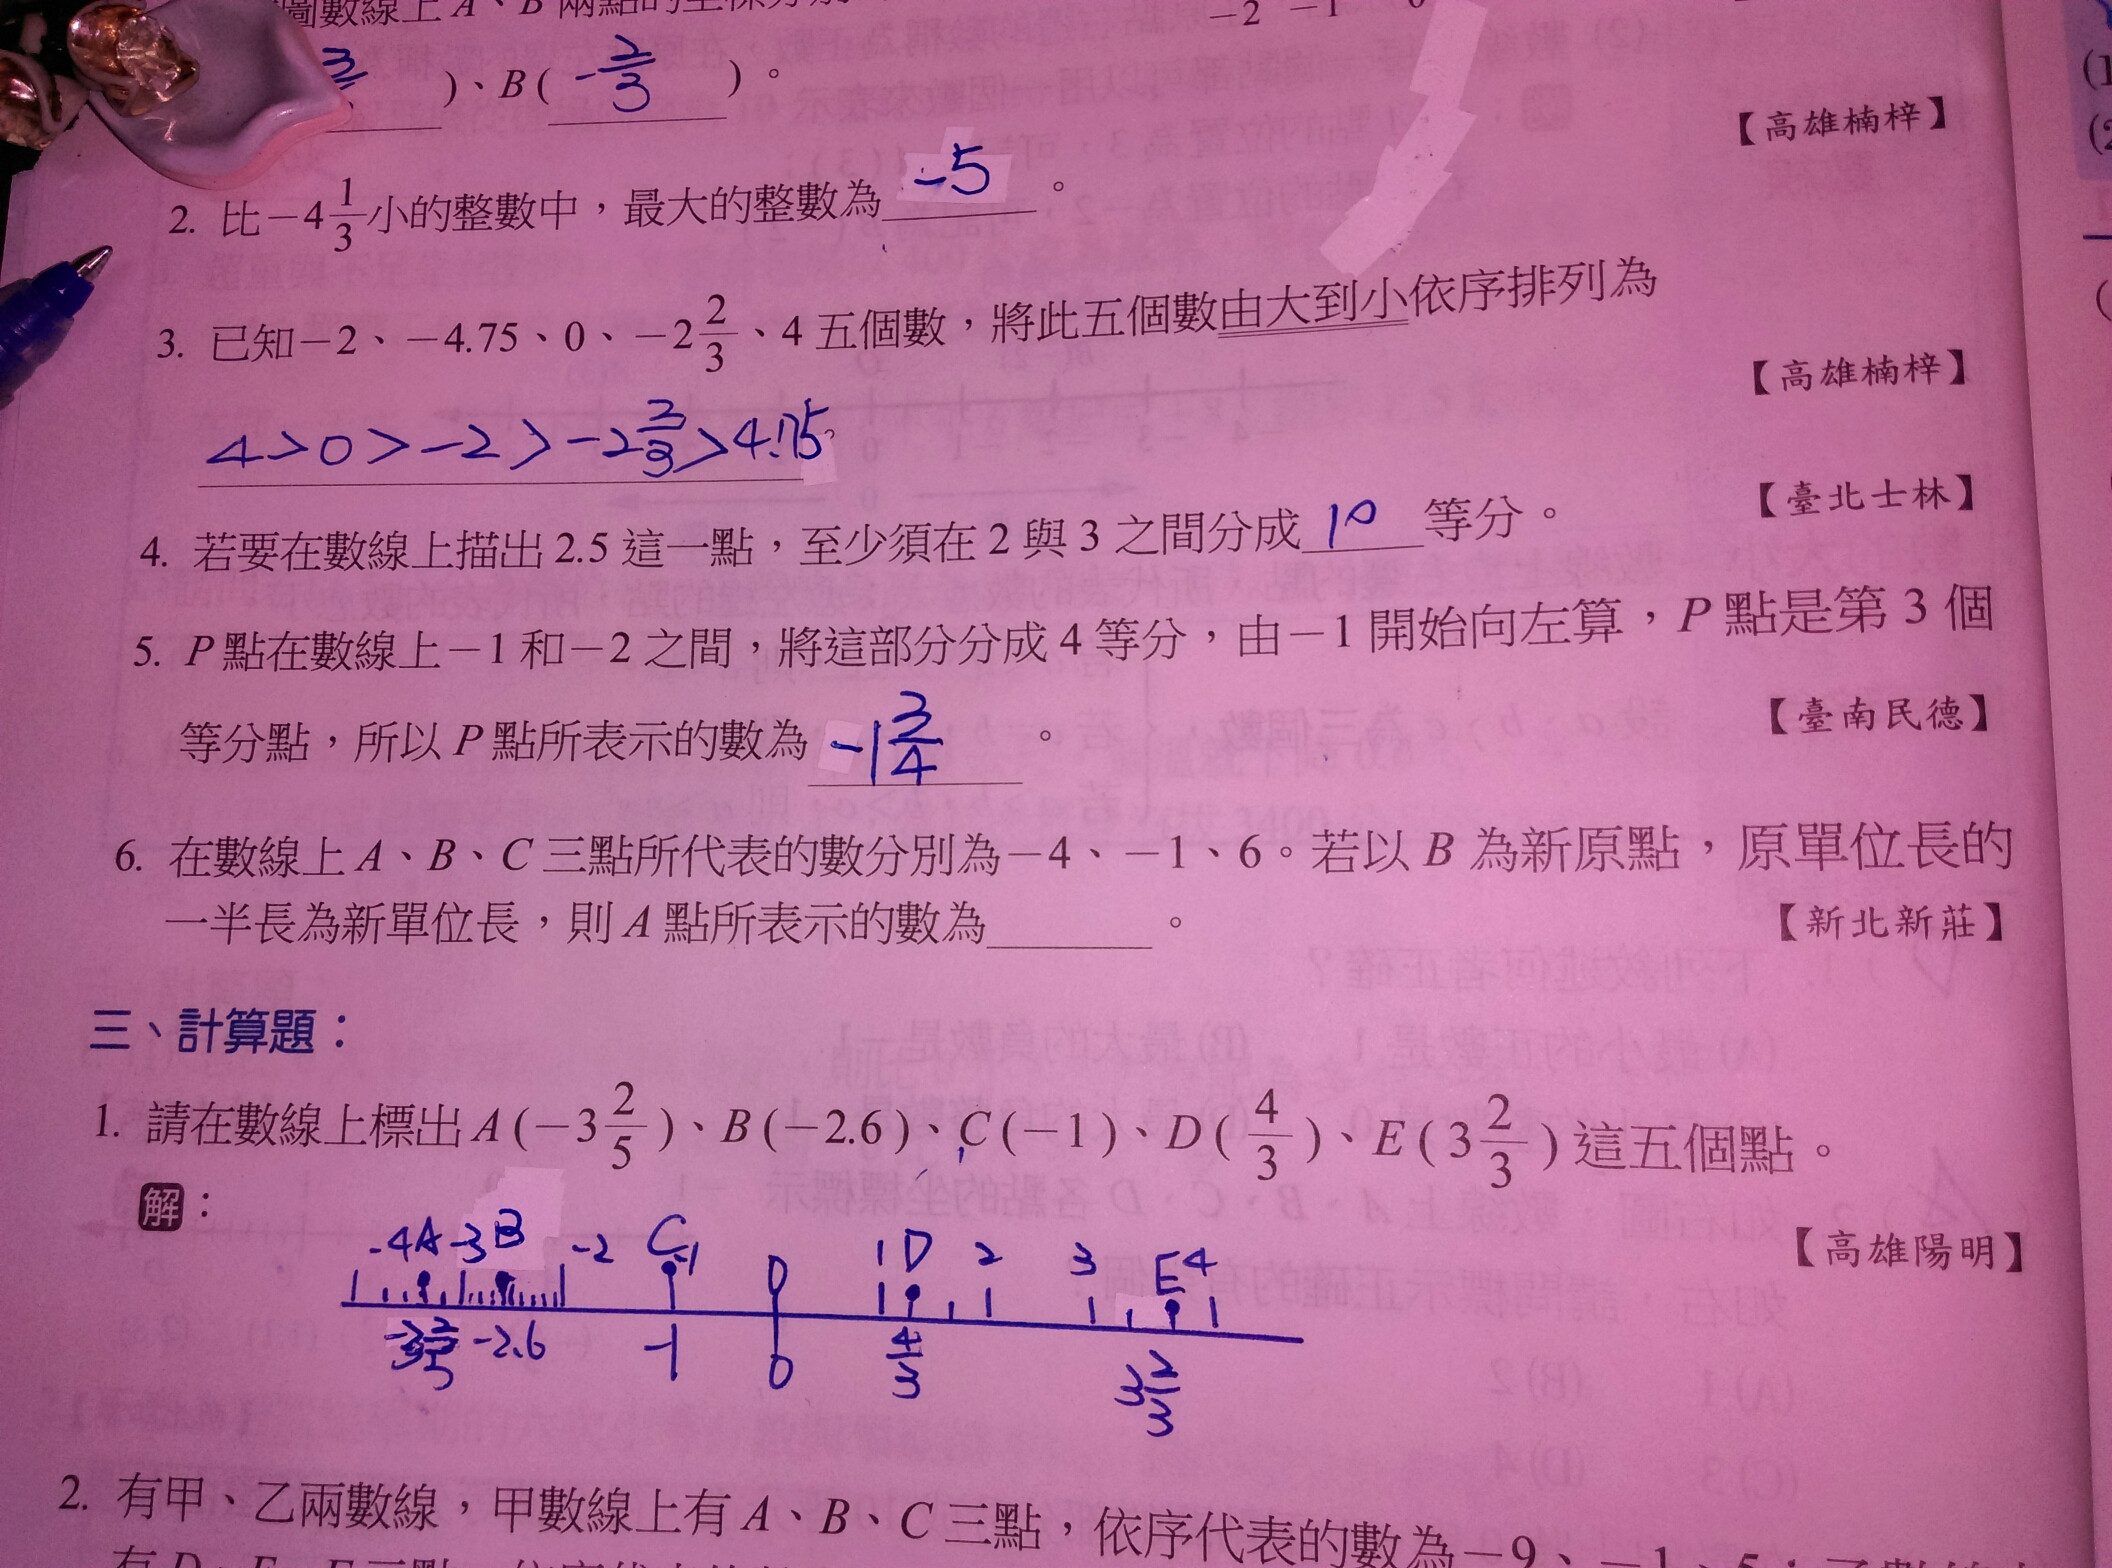 圖數線上A、B兩點的坐標分別
3 )、B( -2/3 )。
【高雄楠梓】
2. 比-4 1/3小的整數中,最大的整數為 -5 。
3. 已知-2、-4.75、0、-2 2/3、4五個數,將此五個數由大到小依序排列為
【高雄楠梓】
4>0>-2>-2 2/3>4.75。
【臺北士林】
4. 若要在數線上描出2.5這一點,至少須在2與3之間分成 10 等分。
5. P點在數線上-1和-2之間,將這部分分成4等分,由-1開始向左算,P點是第3個
等分點,所以P點所表示的數為 -1 3/4 。
【臺南民德】
6. 在數線上A、B、C三點所代表的數分別為-4、-1、6。若以B為新原點,原單位長的
一半長為新單位長,則A點所表示的數為______。
【新北新莊】
三、計算題:
1. 請在數線上標出A(-3 2/5)、B(-2.6)、C(-1)、D(4/3)、E(3 2/3)這五個點。
解:
【高雄陽明】
-4 A -3 B -2 C -1 0 1 D 2 3 E 4
-3 2/5 -2.6 -1 0 4/3 3 2/3
2. 有甲、乙兩數線,甲數線上有A、B、C三點,依序代表的數為-9、-1、5;乙數線